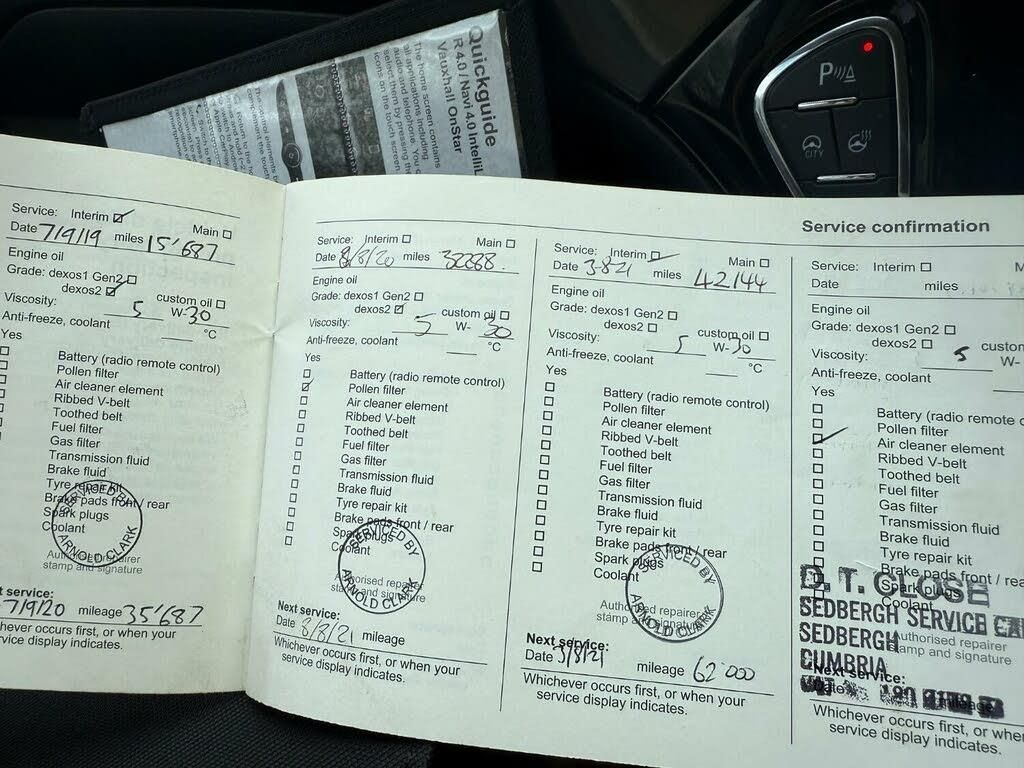 Quickguide
R 4.0 / Navi 4.0 IntelliL
Vauxhall OnStar
The home screen contains
all applications including
audio and telephone. You c
select them by pressing the
icons on the touch screen
P
CITY
Service: Interim ☑
Main ☐
Date 7/9/19 miles 15'687
Engine oil
Grade: dexos1 Gen2 ☐
dexos2 ☑ custom oil ☐
Viscosity: 5 W-30
Anti-freeze, coolant °C
Yes
Battery (radio remote control)
Pollen filter
Air cleaner element
Ribbed V-belt
Toothed belt
Fuel filter
Gas filter
Transmission fluid
Brake fluid
Tyre repair kit
Brake pads front / rear
Spark plugs
Coolant
SERVICED BY
ARNOLD CLARK
Authorised repairer
stamp and signature
t service:
7/9/20 mileage 35'687
hever occurs first, or when your
rvice display indicates.
Service: Interim ☐ Main ☐
Date 8/8/20 miles
Engine oil
Grade: dexos1 Gen2 ☐
dexos2 ☑ custom oil ☐
Viscosity: 5 W- 30
Anti-freeze, coolant °C
Yes
Battery (radio remote control)
Pollen filter
Air cleaner element
Ribbed V-belt
Toothed belt
Fuel filter
Gas filter
Transmission fluid
Brake fluid
Tyre repair kit
Brake pads front / rear
Spark plugs
Coolant
SERVICED BY
ARNOLD CLARK
Authorised repairer
stamp and signature
Next service:
Date 8/8/21 mileage
Whichever occurs first, or when your
service display indicates.
Service confirmation
Service: Interim ☑ Main ☐
Date 3-8-21 miles 42144
Engine oil
Grade: dexos1 Gen2 ☐
dexos2 ☐ custom oil ☐
Viscosity: 5 W-30
Anti-freeze, coolant °C
Yes
Battery (radio remote control)
Pollen filter
Air cleaner element
Ribbed V-belt
Toothed belt
Fuel filter
Gas filter
Transmission fluid
Brake fluid
Tyre repair kit
Brake pads front / rear
Spark plugs
Coolant
SERVICED BY
ARNOLD CLARK
Authorised repairer
stamp
Next service:
Date 3/8/21 mileage 62'000
Whichever occurs first, or when your
service display indicates.
Service: Interim ☐ M
Date miles
Engine oil
Grade: dexos1 Gen2 ☐
dexos2 ☐ custom
Viscosity: 5 W-
Anti-freeze, coolant
Yes
Battery (radio remote c
Pollen filter
Air cleaner element
Ribbed V-belt
Toothed belt
Fuel filter
Gas filter
Transmission fluid
Brake fluid
Tyre repair kit
Brake pads front / rea
Spark plugs
Coolant
D. T. CLOSE
SEDBERGH SERVICE
SEDBERGH
CUMBRIA
Authorised repairer
stamp and signature
Next service:
Whichever occurs first, or when
service display indicates.